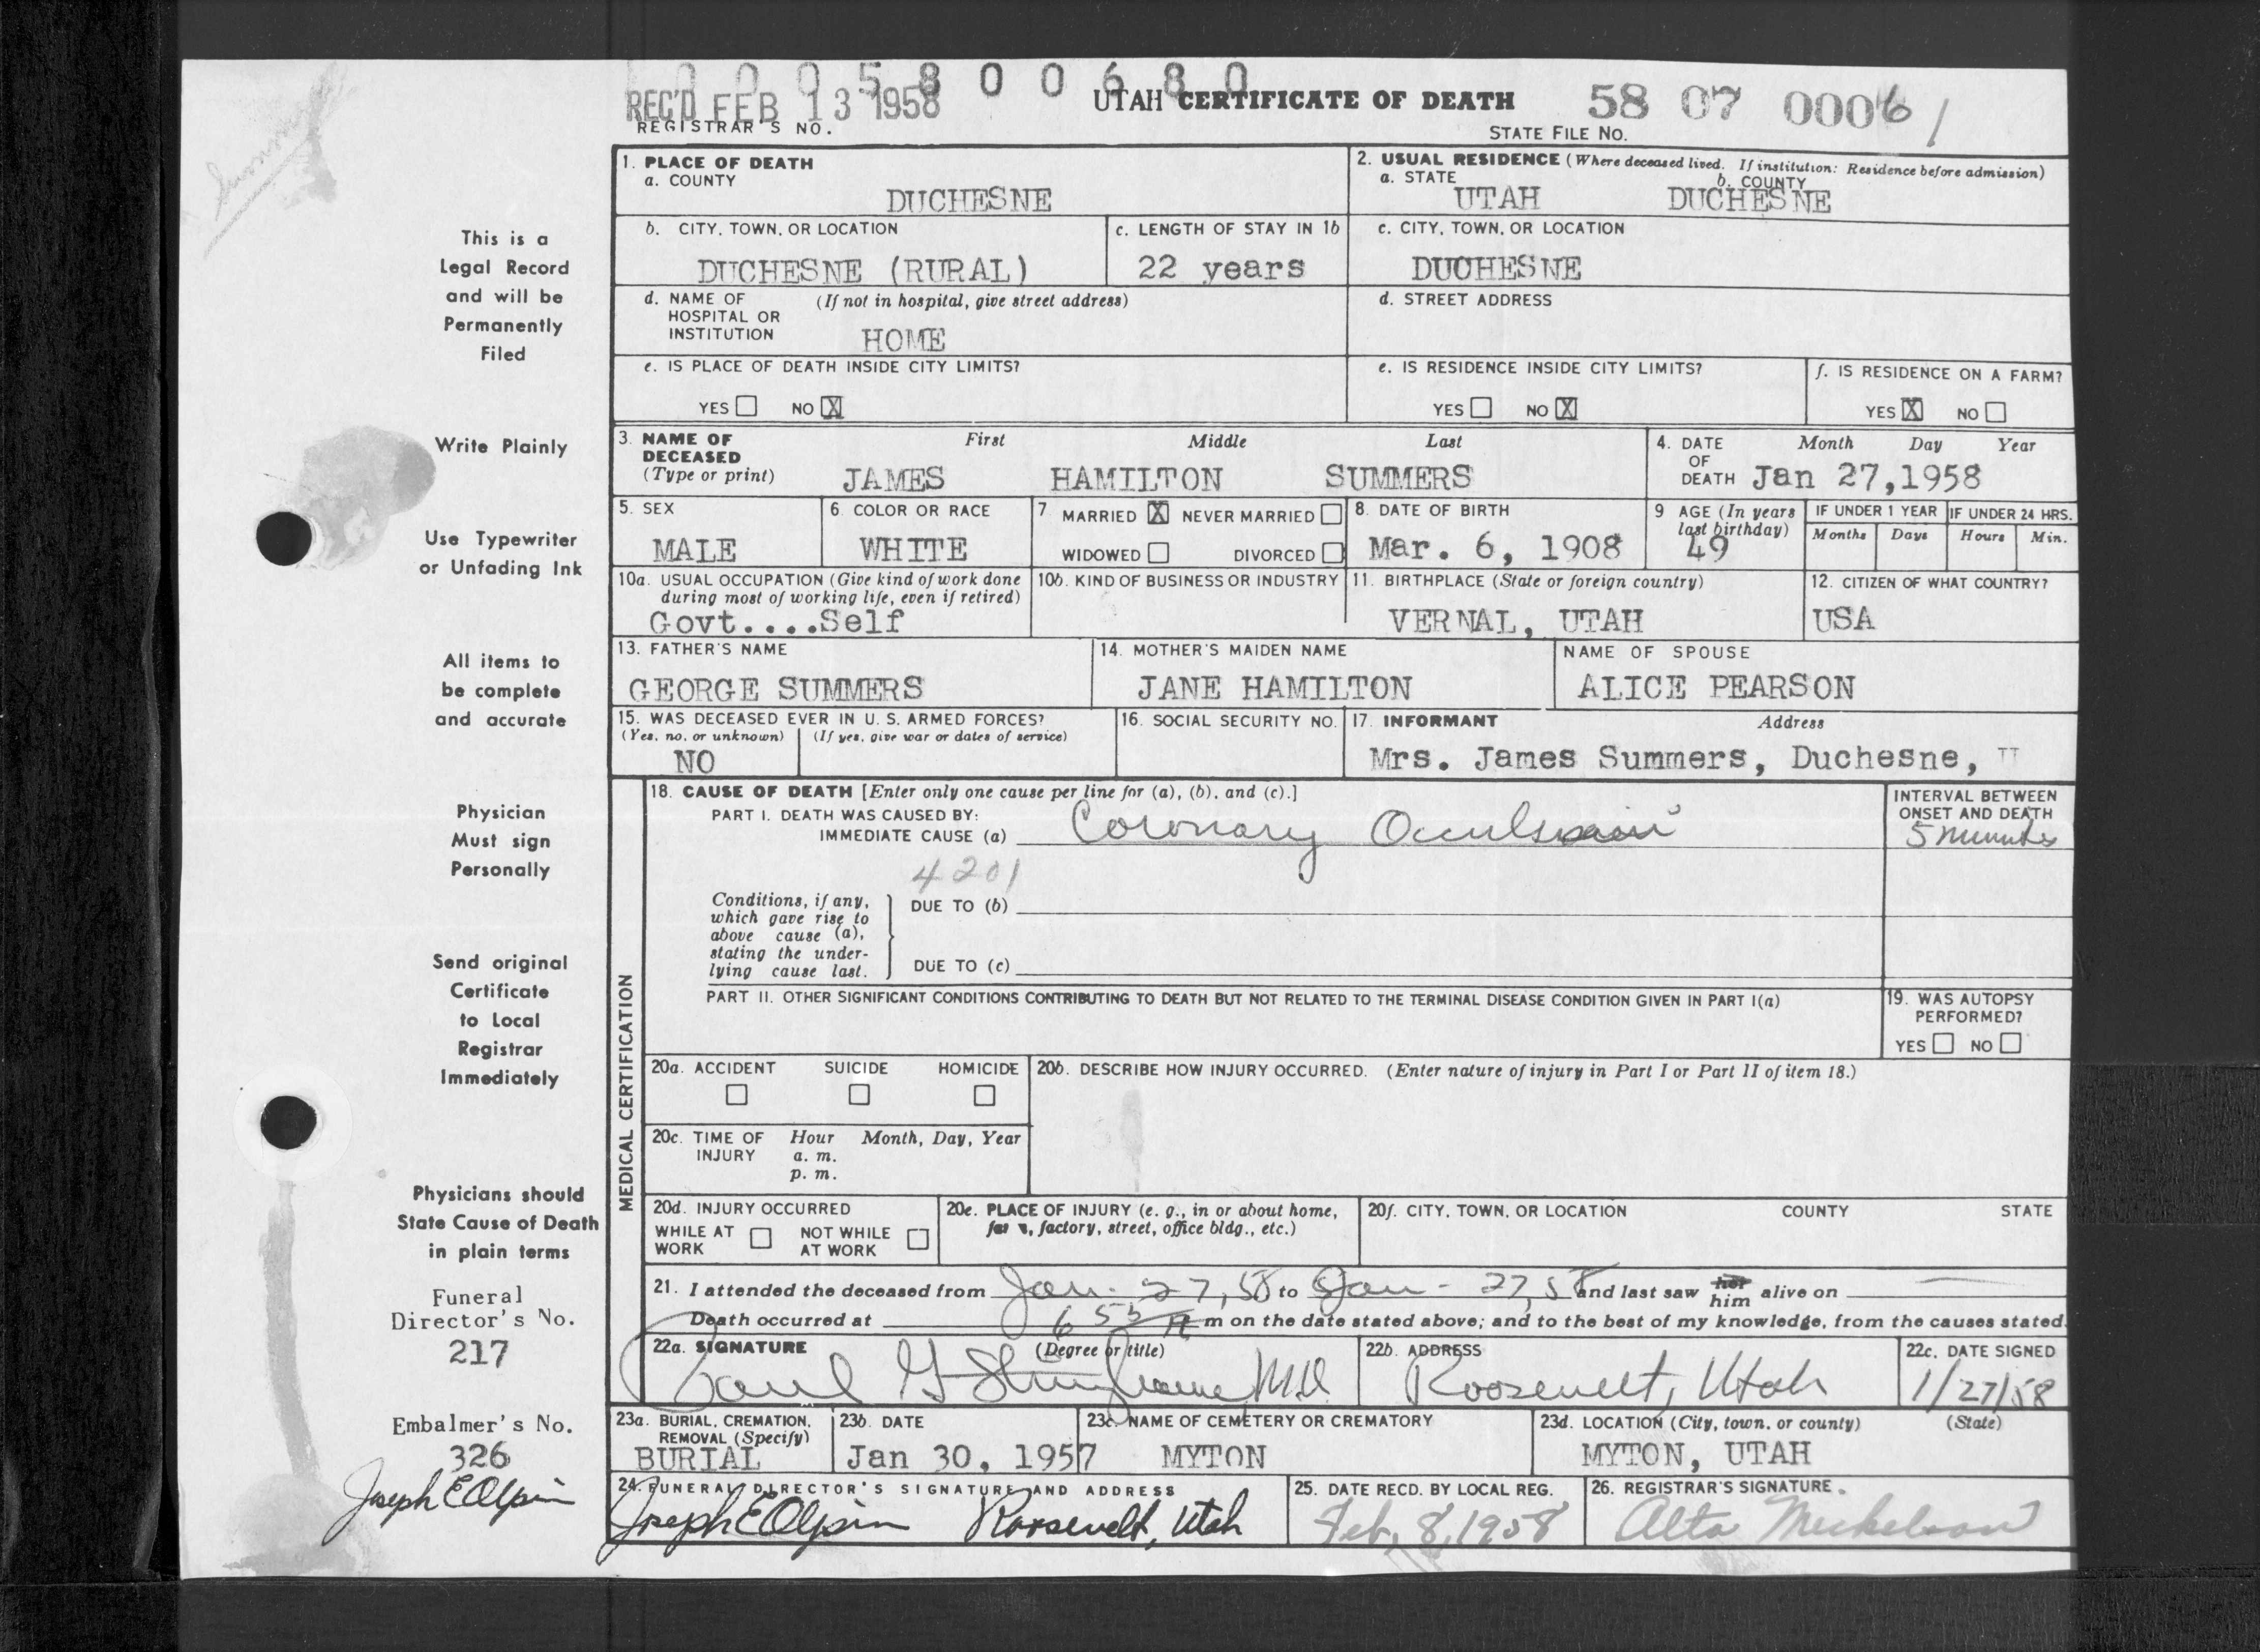 0 0 0 5 8 0 0 6 8 0
REC'D FEB 13 1958
UTAH CERTIFICATE OF DEATH 58 07 0006 1
REGISTRAR'S NO. STATE FILE NO.
1. PLACE OF DEATH
a. COUNTY
DUCHESNE
2. USUAL RESIDENCE (Where deceased lived. If institution: Residence before admission)
a. STATE b. COUNTY
UTAH DUCHESNE
b. CITY, TOWN, OR LOCATION
DUCHESNE (RURAL)
c. LENGTH OF STAY IN 1b
22 years
c. CITY, TOWN, OR LOCATION
DUCHESNE
d. NAME OF (If not in hospital, give street address)
HOSPITAL OR
INSTITUTION HOME
d. STREET ADDRESS
e. IS PLACE OF DEATH INSIDE CITY LIMITS?
YES NO X
e. IS RESIDENCE INSIDE CITY LIMITS?
YES NO X
f. IS RESIDENCE ON A FARM?
YES X NO
3. NAME OF First Middle Last
DECEASED
(Type or print) JAMES HAMILTON SUMMERS
4. DATE Month Day Year
OF
DEATH Jan 27,1958
5. SEX
MALE
6. COLOR OR RACE
WHITE
7. MARRIED X NEVER MARRIED
WIDOWED DIVORCED
8. DATE OF BIRTH
Mar. 6, 1908
9 AGE (In years
last birthday)
49
IF UNDER 1 YEAR IF UNDER 24 HRS.
Months Days Hours Min.
10a. USUAL OCCUPATION (Give kind of work done
during most of working life, even if retired)
Govt....Self
10b. KIND OF BUSINESS OR INDUSTRY
11. BIRTHPLACE (State or foreign country)
VERNAL, UTAH
12. CITIZEN OF WHAT COUNTRY?
USA
13. FATHER'S NAME
GEORGE SUMMERS
14. MOTHER'S MAIDEN NAME
JANE HAMILTON
NAME OF SPOUSE
ALICE PEARSON
15. WAS DECEASED EVER IN U. S. ARMED FORCES?
(Yes, no, or unknown) (If yes, give war or dates of service)
NO
16. SOCIAL SECURITY NO.
17. INFORMANT Address
Mrs. James Summers, Duchesne, U
MEDICAL CERTIFICATION
18. CAUSE OF DEATH [Enter only one cause per line for (a), (b), and (c).]
PART I. DEATH WAS CAUSED BY:
IMMEDIATE CAUSE (a) Coronary
INTERVAL BETWEEN
ONSET AND DEATH
5 minutes
4201
Conditions, if any,
which gave rise to
above cause (a),
stating the under-
lying cause last.
DUE TO (b)
DUE TO (c)
PART II. OTHER SIGNIFICANT CONDITIONS CONTRIBUTING TO DEATH BUT NOT RELATED TO THE TERMINAL DISEASE CONDITION GIVEN IN PART I(a)
19. WAS AUTOPSY
PERFORMED?
YES NO
20a. ACCIDENT SUICIDE HOMICIDE
20b. DESCRIBE HOW INJURY OCCURRED. (Enter nature of injury in Part I or Part II of item 18.)
20c. TIME OF Hour Month, Day, Year
INJURY a. m.
p. m.
20d. INJURY OCCURRED
WHILE AT NOT WHILE
WORK AT WORK
20e. PLACE OF INJURY (e. g., in or about home,
farm, factory, street, office bldg., etc.)
20f. CITY, TOWN, OR LOCATION COUNTY STATE
21. I attended the deceased from Jan. 27, 58 to Jan - 27, 58 and last saw her him alive on
Death occurred at 6 55 m on the date stated above; and to the best of my knowledge, from the causes stated.
22a. SIGNATURE (Degree or title)
Paul G Stringham MD
22b. ADDRESS
Roosevelt, Utah
22c. DATE SIGNED
1/27/58
23a. BURIAL, CREMATION,
REMOVAL (Specify)
BURIAL
23b. DATE
Jan 30, 1957
23c. NAME OF CEMETERY OR CREMATORY
MYTON
23d. LOCATION (City, town, or county) (State)
MYTON, UTAH
24. FUNERAL DIRECTOR'S SIGNATURE AND ADDRESS
Joseph E Olpin Roosevelt, Utah
25. DATE RECD. BY LOCAL REG.
Feb, 8, 1958
26. REGISTRAR'S SIGNATURE.
Alta
This is a
Legal Record
and will be
Permanently
Filed
Write Plainly
Use Typewriter
or Unfading Ink
All items to
be complete
and accurate
Physician
Must sign
Personally
Send original
Certificate
to Local
Registrar
Immediately
Physicians should
State Cause of Death
in plain terms
Funeral
Director's No.
217
Embalmer's No.
326
Joseph E Olpin